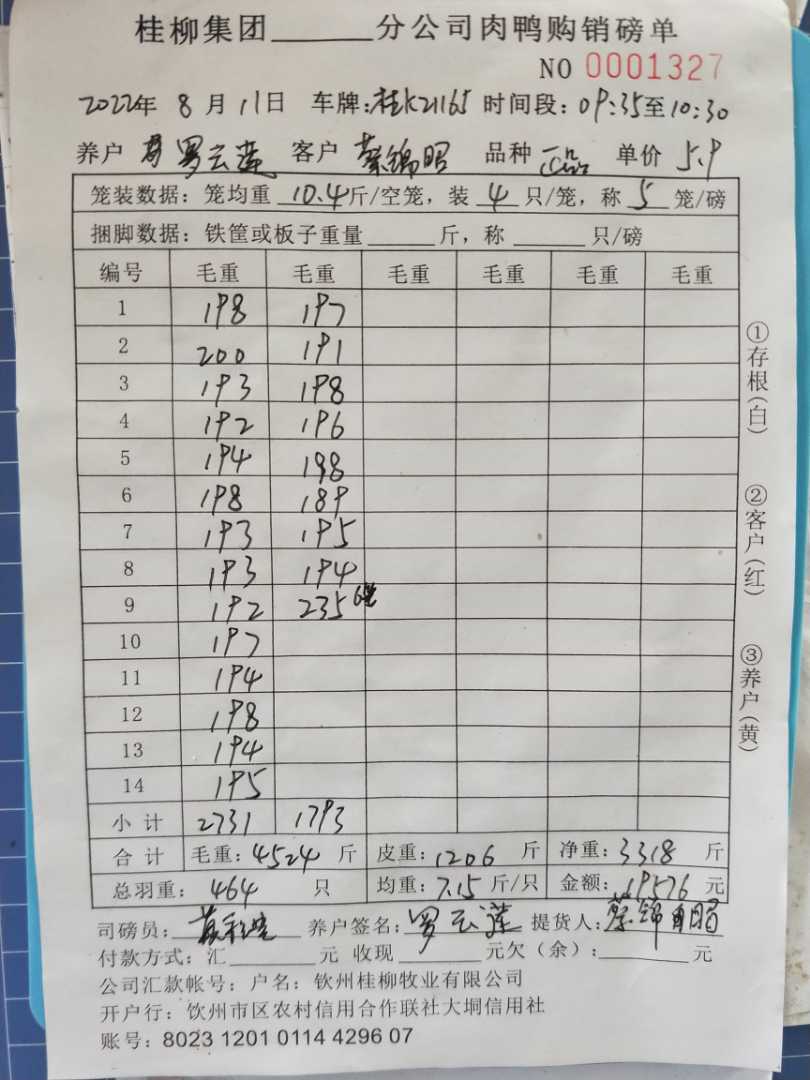 桂柳集团______分公司肉鸭购销磅单
NO 0001327
2022年 8月11日 车牌:桂K21165 时间段:09:35至10:30
养户 罗云莲 客户 蔡锦昭 品种 正品 单价 5.9
笼装数据：笼均重 10.4 斤/空笼，装 4 只/笼，称 5 笼/磅
捆脚数据：铁筐或板子重量______斤，称______只/磅
编号 毛重 毛重 毛重 毛重 毛重 毛重
1 198 197
2 200 191
3 193 198
4 192 196
5 194 198
6 198 189
7 193 195
8 193 194
9 192 235 6笼
10 197
11 194
12 198
13 194
14 195
小计 2731 1793
合计 毛重：4524 斤 皮重：1206 斤 净重：3318 斤
总羽重：464 只 均重：7.15 斤/只 金额：19576 元
司磅员： 养户签名：罗云莲 提货人：蔡锦昭
付款方式：汇______元 收现______元欠（余）：______元
公司汇款帐号：户名：钦州桂柳牧业有限公司
开户行：钦州市区农村信用合作联社大垌信用社
账号：8023 1201 0114 4296 07
①存根(白)
②客户(红)
③养户(黄)